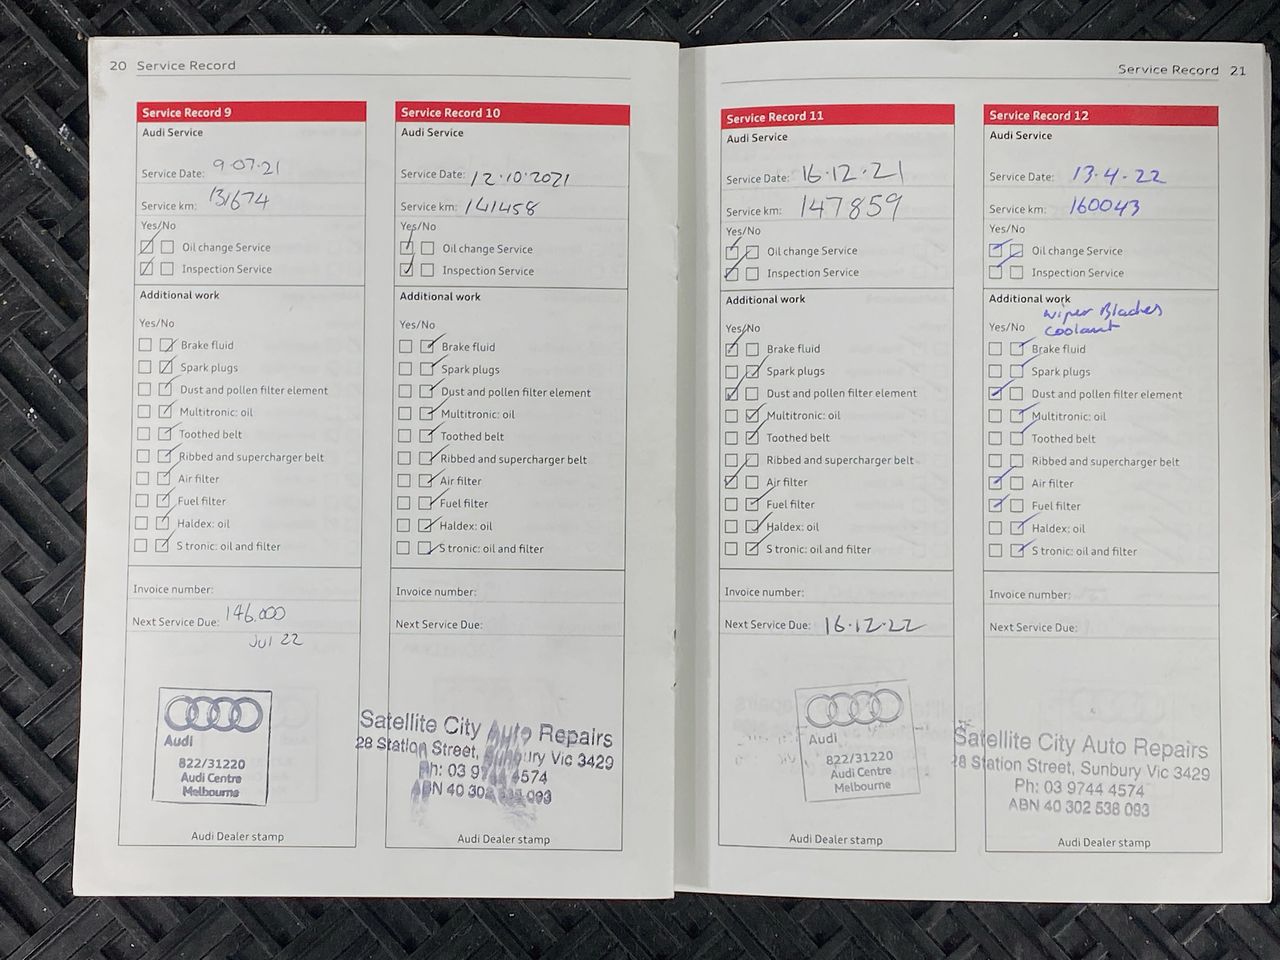 20 Service Record
Service Record 9
Audi Service
Service Date: 9.07.21
Service km: 131674
Yes/No
Oil change Service
Inspection Service
Additional work
Yes/No
Brake fluid
Spark plugs
Dust and pollen filter element
Multitronic: oil
Toothed belt
Ribbed and supercharger belt
Air filter
Fuel filter
Haldex: oil
S tronic: oil and filter
Invoice number:
Next Service Due: 146.000
Jul 22
Audi
822/31220
Audi Centre
Melbourne
Audi Dealer stamp
Service Record 10
Audi Service
Service Date: 12.10.2021
Service km: 141458
Yes/No
Oil change Service
Inspection Service
Additional work
Yes/No
Brake fluid
Spark plugs
Dust and pollen filter element
Multitronic: oil
Toothed belt
Ribbed and supercharger belt
Air filter
Fuel filter
Haldex: oil
S tronic: oil and filter
Invoice number:
Next Service Due:
Satellite City Auto Repairs
28 Station Street, Sunbury Vic 3429
Ph: 03 9744 4574
ABN 40 302 538 093
Audi Dealer stamp
Service Record 21
Service Record 11
Audi Service
Service Date: 16.12.21
Service km: 147859
Yes/No
Oil change Service
Inspection Service
Additional work
Yes/No
Brake fluid
Spark plugs
Dust and pollen filter element
Multitronic: oil
Toothed belt
Ribbed and supercharger belt
Air filter
Fuel filter
Haldex: oil
S tronic: oil and filter
Invoice number:
Next Service Due: 16.12.22
Audi
822/31220
Audi Centre
Melbourne
Audi Dealer stamp
Service Record 12
Audi Service
Service Date: 13.4.22
Service km: 160043
Yes/No
Oil change Service
Inspection Service
Additional work
wiper Blades
Yes/No coolant
Brake fluid
Spark plugs
Dust and pollen filter element
Multitronic: oil
Toothed belt
Ribbed and supercharger belt
Air filter
Fuel filter
Haldex: oil
S tronic: oil and filter
Invoice number:
Next Service Due:
Satellite City Auto Repairs
28 Station Street, Sunbury Vic 3429
Ph: 03 9744 4574
ABN 40 302 538 093
Audi Dealer stamp